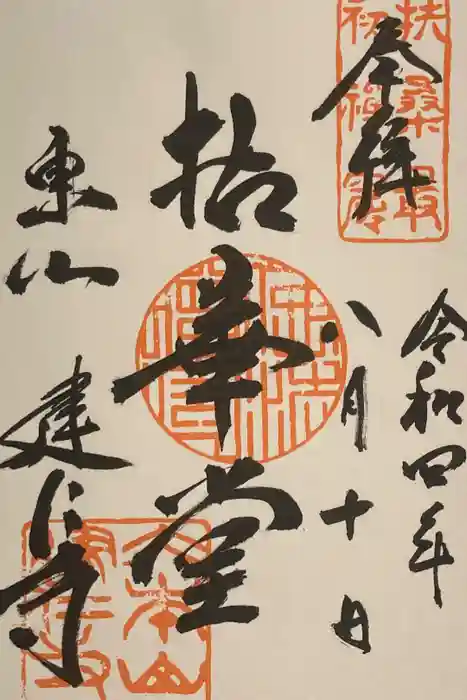 奉拝
令和四年
八月十日
拈華堂
東山
建仁寺
扶桑最
初禅窟
大本山
建仁寺